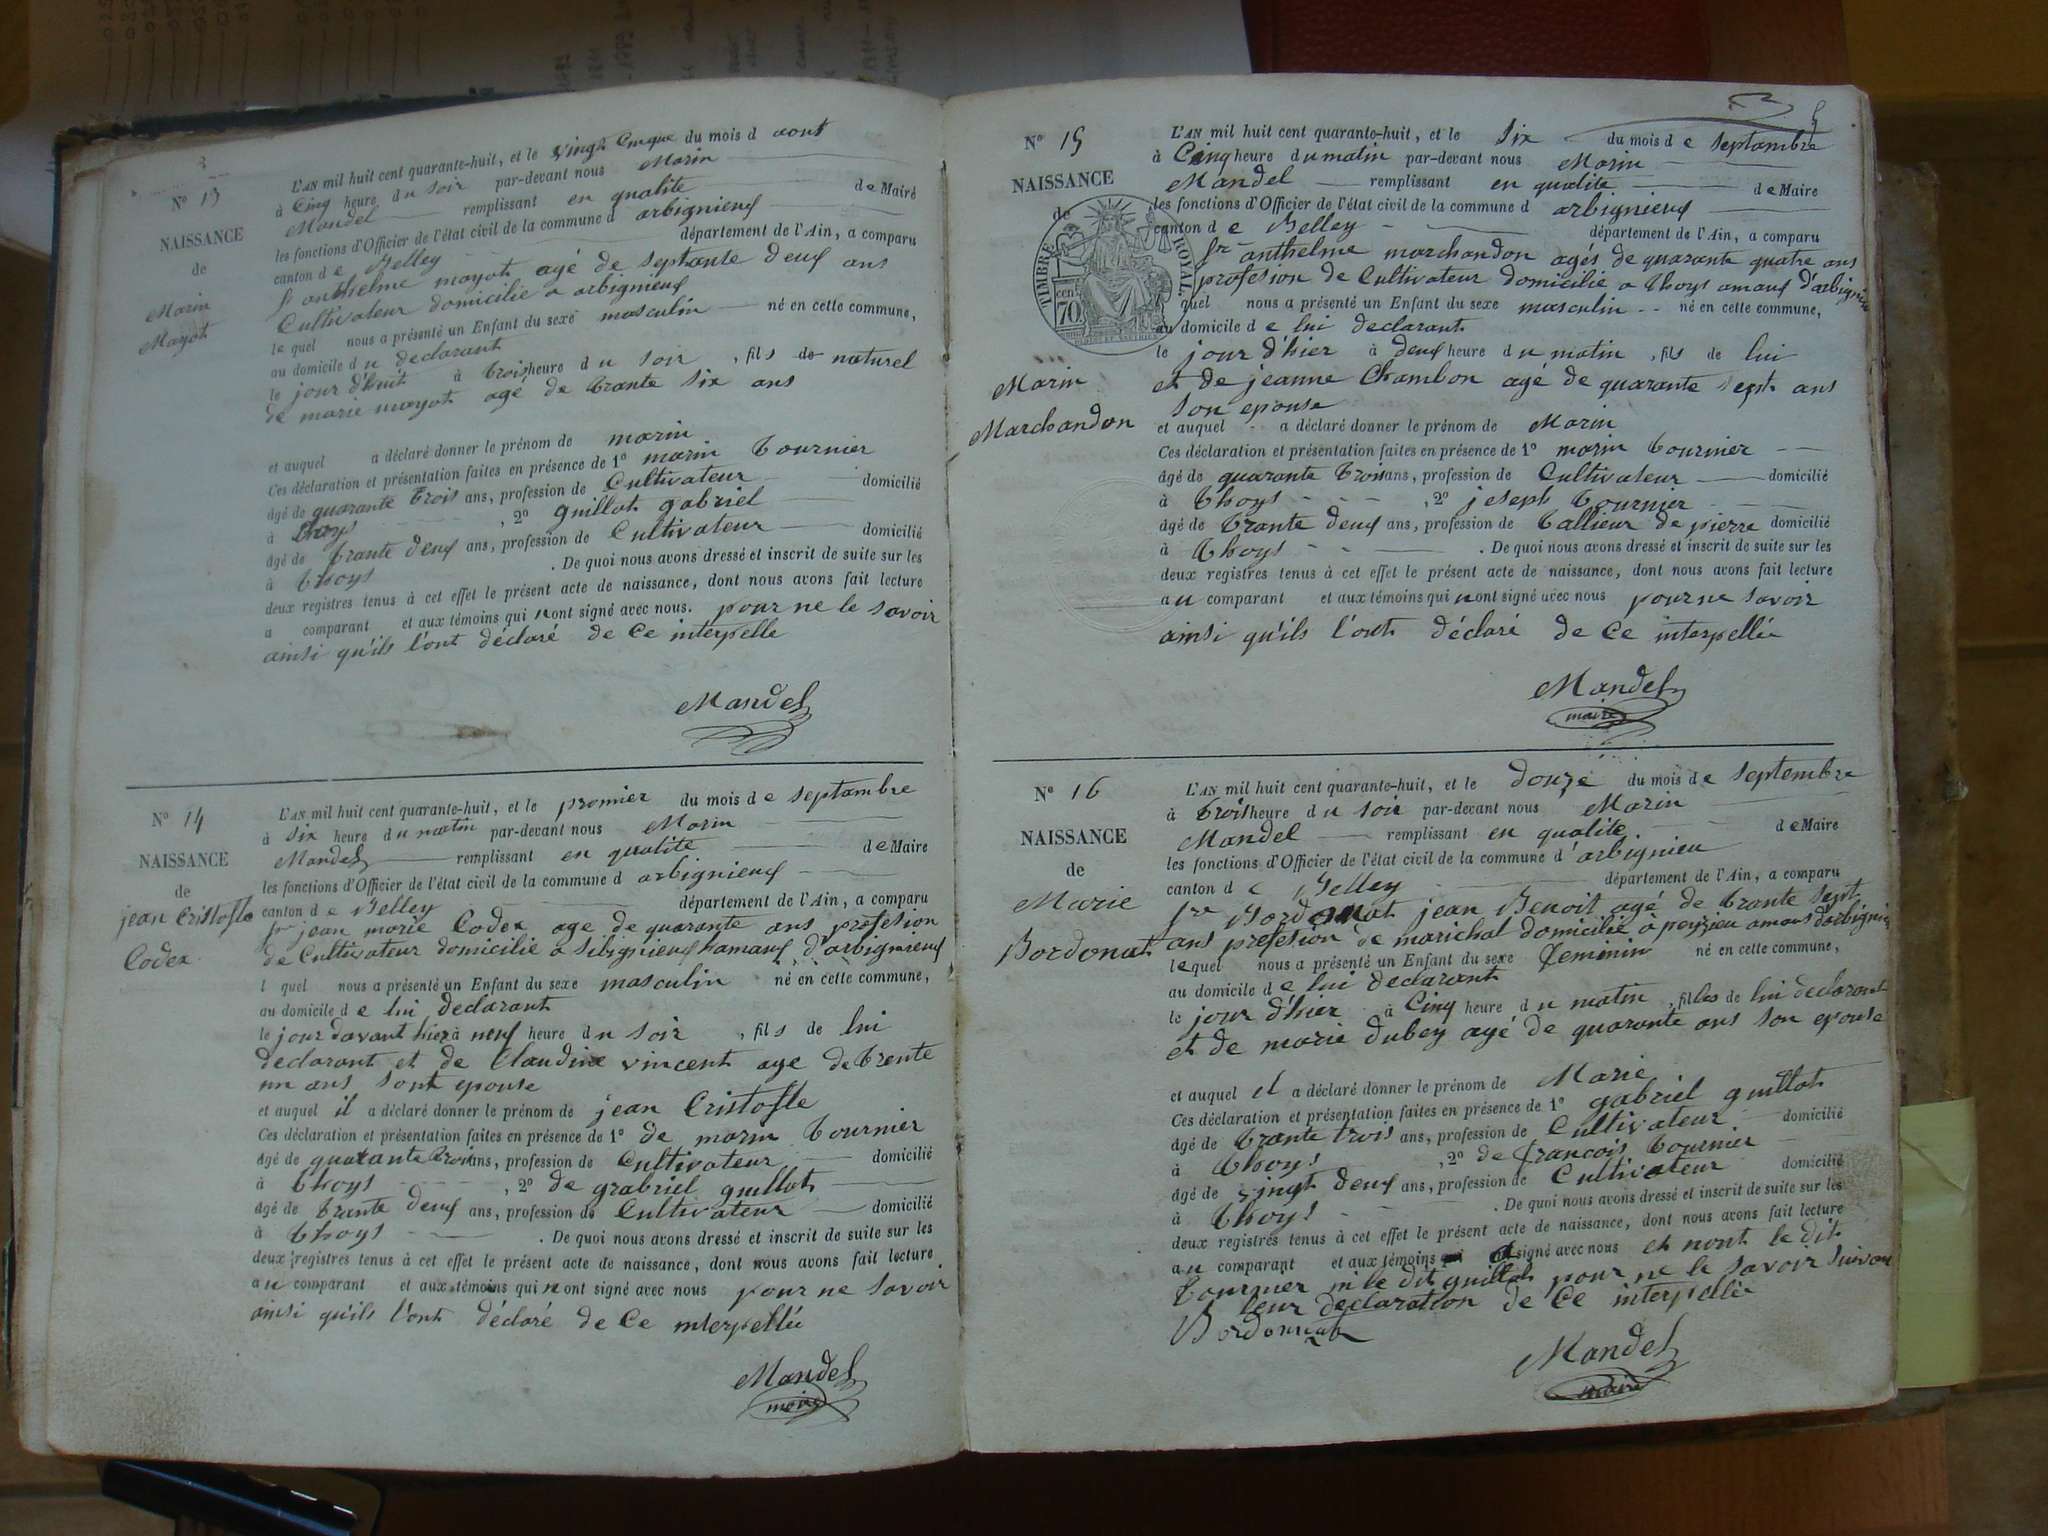 Nº 13
NAISSANCE
de
Marin
Mayot
L'AN mil huit cent quarante-huit, et le vingt Cinque du mois d aout
à Cinq heure du soir par-devant nous Marin
Mandel remplissant en qualite de Maire
les fonctions d'Officier de l'état civil de la commune d arbignieux
canton de Belley département de l'Ain, a comparu
Sr anthelme mayot agé de septante deux ans
Cultivateur domicilie a arbignieux
le quel nous a présenté un Enfant du sexe masculin né en cette commune,
au domicile du declarant
le jour d'huit à trois heure du soir, fils de naturel
de marie mayot agé de trante six ans
et auquel a déclaré donner le prénom de marin
Ces déclaration et présentation faites en présence de 1º marin tournier
âgé de quarante trois ans, profession de Cultivateur domicilié
à thoys, 2º guillot gabriel
âgé de trante deux ans, profession de Cultivateur domicilié
à thoys. De quoi nous avons dressé et inscrit de suite sur les
deux registres tenus à cet effet le présent acte de naissance, dont nous avons fait lecture
a comparant et aux témoins qui nont signé avec nous. pour ne le savoir
ainsi qu'ils l'ont déclaré de Ce interpelle
Mandel
Nº 14
NAISSANCE
de
jean Cristofle
Codex
L'AN mil huit cent quarante-huit, et le promier du mois de septambre
à six heure du matin par-devant nous Marin
Mandel remplissant en qualite de Maire
les fonctions d'Officier de l'état civil de la commune d arbignieux
canton de Belley département de l'Ain, a comparu
Sr jean marie Codex age de quarante ans profesion
de Cultivateur domicilie a Sibignieux hamaux d'arbignieux
l quel nous a présenté un Enfant du sexe masculin né en cette commune,
au domicile de lui declarant
le jour davant hier à neuf heure du soir, fils de lui
declarant et de Claudine vincent age de trente
un ans sont epouse
et auquel il a déclaré donner le prénom de jean Cristofle
Ces déclaration et présentation faites en présence de 1º de marin tournier
âgé de quarante trois ans, profession de Cultivateur domicilié
à thoys, 2º de grabriel guillot
âgé de trante deux ans, profession de Cultivateur domicilié
à thoys. De quoi nous avons dressé et inscrit de suite sur les
deux registres tenus à cet effet le présent acte de naissance, dont nous avons fait lecture
au comparant et aux témoins qui nont signé avec nous pour ne savoir
ainsi qu'ils l'ont déclaré de Ce interpellée
Mandel
maire
Nº 15
NAISSANCE
de
TIMBRE ROYAL
70 cen.
Marin
Marchandon
L'AN mil huit cent quarante-huit, et le Six du mois de septambre
à Cinq heure du matin par-devant nous Marin
Mandel remplissant en qualite de Maire
les fonctions d'Officier de l'état civil de la commune d arbignieux
canton de Belley département de l'Ain, a comparu
Sr anthelme marchandon agés de quarante quatre ans
profesion de Cultivateur domicilie a thoys amaux d'arbignieu
quel nous a présenté un Enfant du sexe masculin né en cette commune,
au domicile de lui declarant
le jour d'hier à deux heure du matin, fils de lui
et de jeanne Chambon agé de quarante sept ans
son epouse
et auquel a déclaré donner le prénom de Marin
Ces déclaration et présentation faites en présence de 1º marin tournier
âgé de quarante trois ans, profession de Cultivateur domicilié
à thoys, 2º joseph tournier
âgé de trante deux ans, profession de tallieur de pierre domicilié
à thoys. De quoi nous avons dressé et inscrit de suite sur les
deux registres tenus à cet effet le présent acte de naissance, dont nous avons fait lecture
au comparant et aux témoins qui nont signé avec nous pour ne savoir
ainsi qu'ils l'ont déclaré de Ce interpellée
Mandel
maire
Nº 16
NAISSANCE
de
Marie
Bordonat
L'AN mil huit cent quarante-huit, et le douze du mois de septembre
à trois heure du soir par-devant nous Marin
Mandel remplissant en qualite de Maire
les fonctions d'Officier de l'état civil de la commune d'arbignieu
canton de Belley département de l'Ain, a comparu
Sre Bordonat jean Benoit agé de trante sept
ans profesion de marichal domicilié à peyzieu amaus d'arbignieu
lequel nous a présenté un Enfant du sexe feminin né en cette commune,
au domicile de lui declarant
le jour d'hier à Cinq heure du matin, filles de lui declarant
et de marie dubey agé de quarante ans son epouse
et auquel el a déclaré donner le prénom de Marie
Ces déclaration et présentation faites en présence de 1º gabriel guillot
âgé de trante trois ans, profession de Cultivateur domicilié
à thoys, 2º de francois tournier
âgé de vingt deux ans, profession de Cultivateur domicilié
à thoys. De quoi nous avons dressé et inscrit de suite sur les
deux registres tenus à cet effet le présent acte de naissance, dont nous avons fait lecture
au comparant et aux témoins signé avec nous et nont le dit
tournier ni le dit guillot pour ne le savoir suivant
leur declaration de Ce interpellée
Bordonnat
Mandel
maire